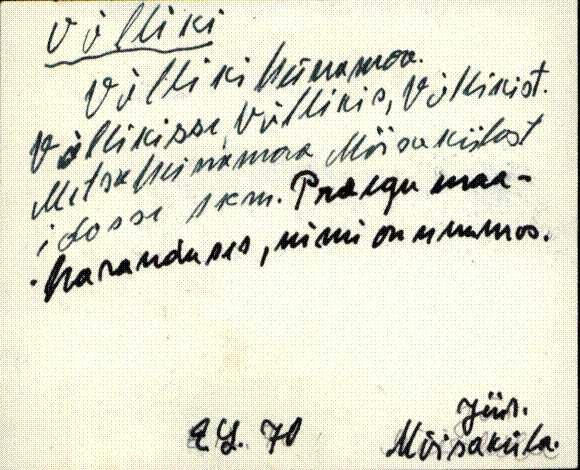 Välliki
Välliki heinamaa.
Vällikisse, Vällikis, Vällikist.
Metsaheinamaa Mõisakülast
idasse 1 km. Praegu maa-
paranduses, nimi on unumas.
EY. 70
Jür.
Mõisaküla.